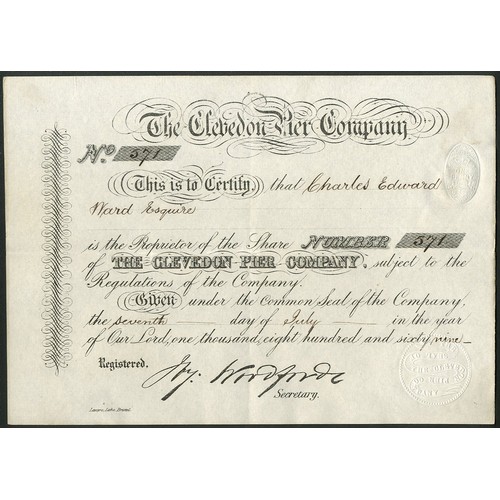 The Clevedon Pier Company
No. 571
This is to Certify that Charles Edward
Ward Esquire
is the Proprietor of the Share NUMBER 571
of THE CLEVEDON PIER COMPANY, subject to the
Regulations of the Company.
Given under the Common Seal of the Company,
the seventh day of July in the year
of Our Lord, one thousand, eight hundred and sixty nine
Registered.
Woodforde
Secretary.